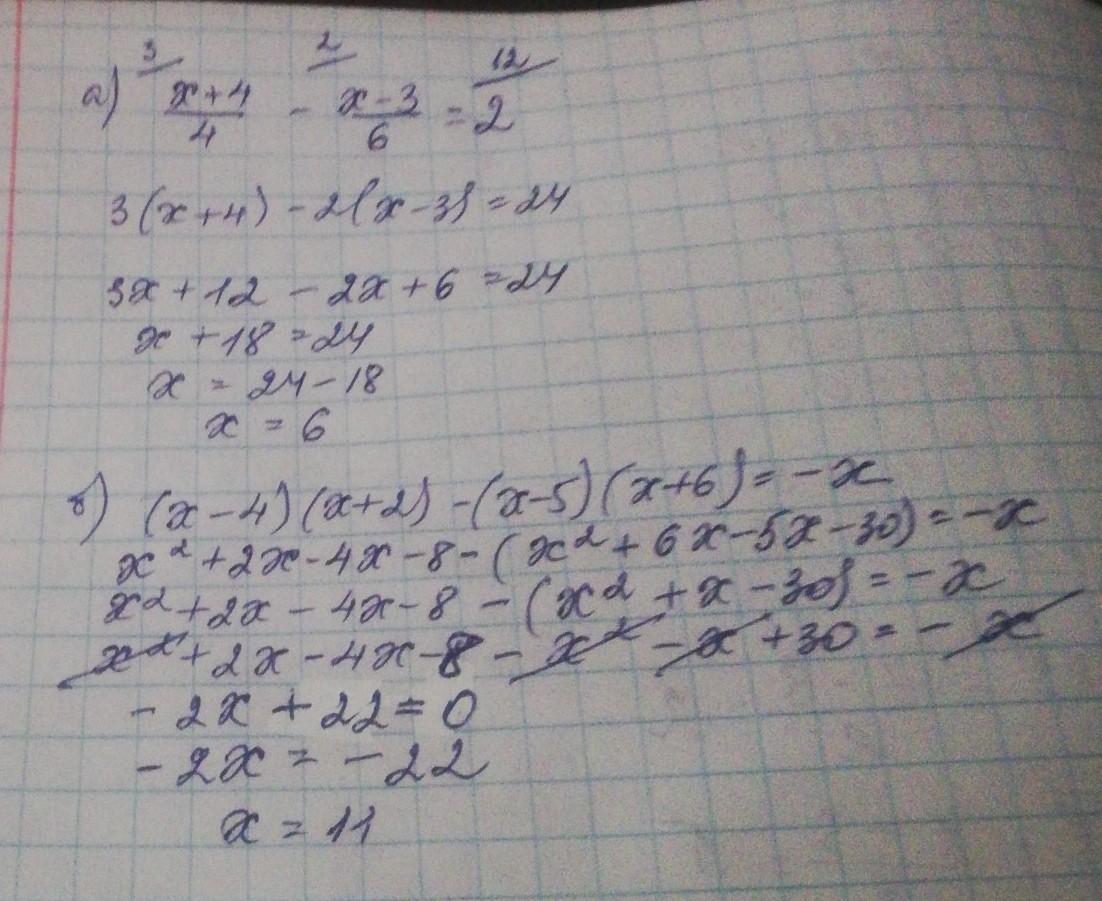 3 2 12
а) x+4/4 - x-3/6 = 2
3(x+4) - 2(x-3) = 24
3x + 12 - 2x + 6 = 24
x + 18 = 24
x = 24 - 18
x = 6
б) (x-4)(x+2) - (x-5)(x+6) = -x
x² + 2x - 4x - 8 - (x² + 6x - 5x - 30) = -x
x² + 2x - 4x - 8 - (x² + x - 30) = -x
x² + 2x - 4x - 8 - x² - x + 30 = -x
- 2x + 22 = 0
- 2x = -22
x = 11